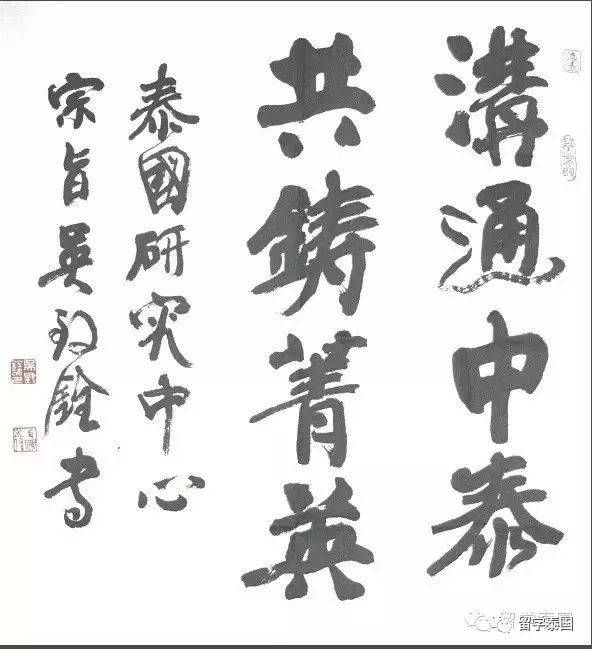 溝通中泰
共鑄菁英
泰國研究中心
宗旨吳致銓書
留学泰国